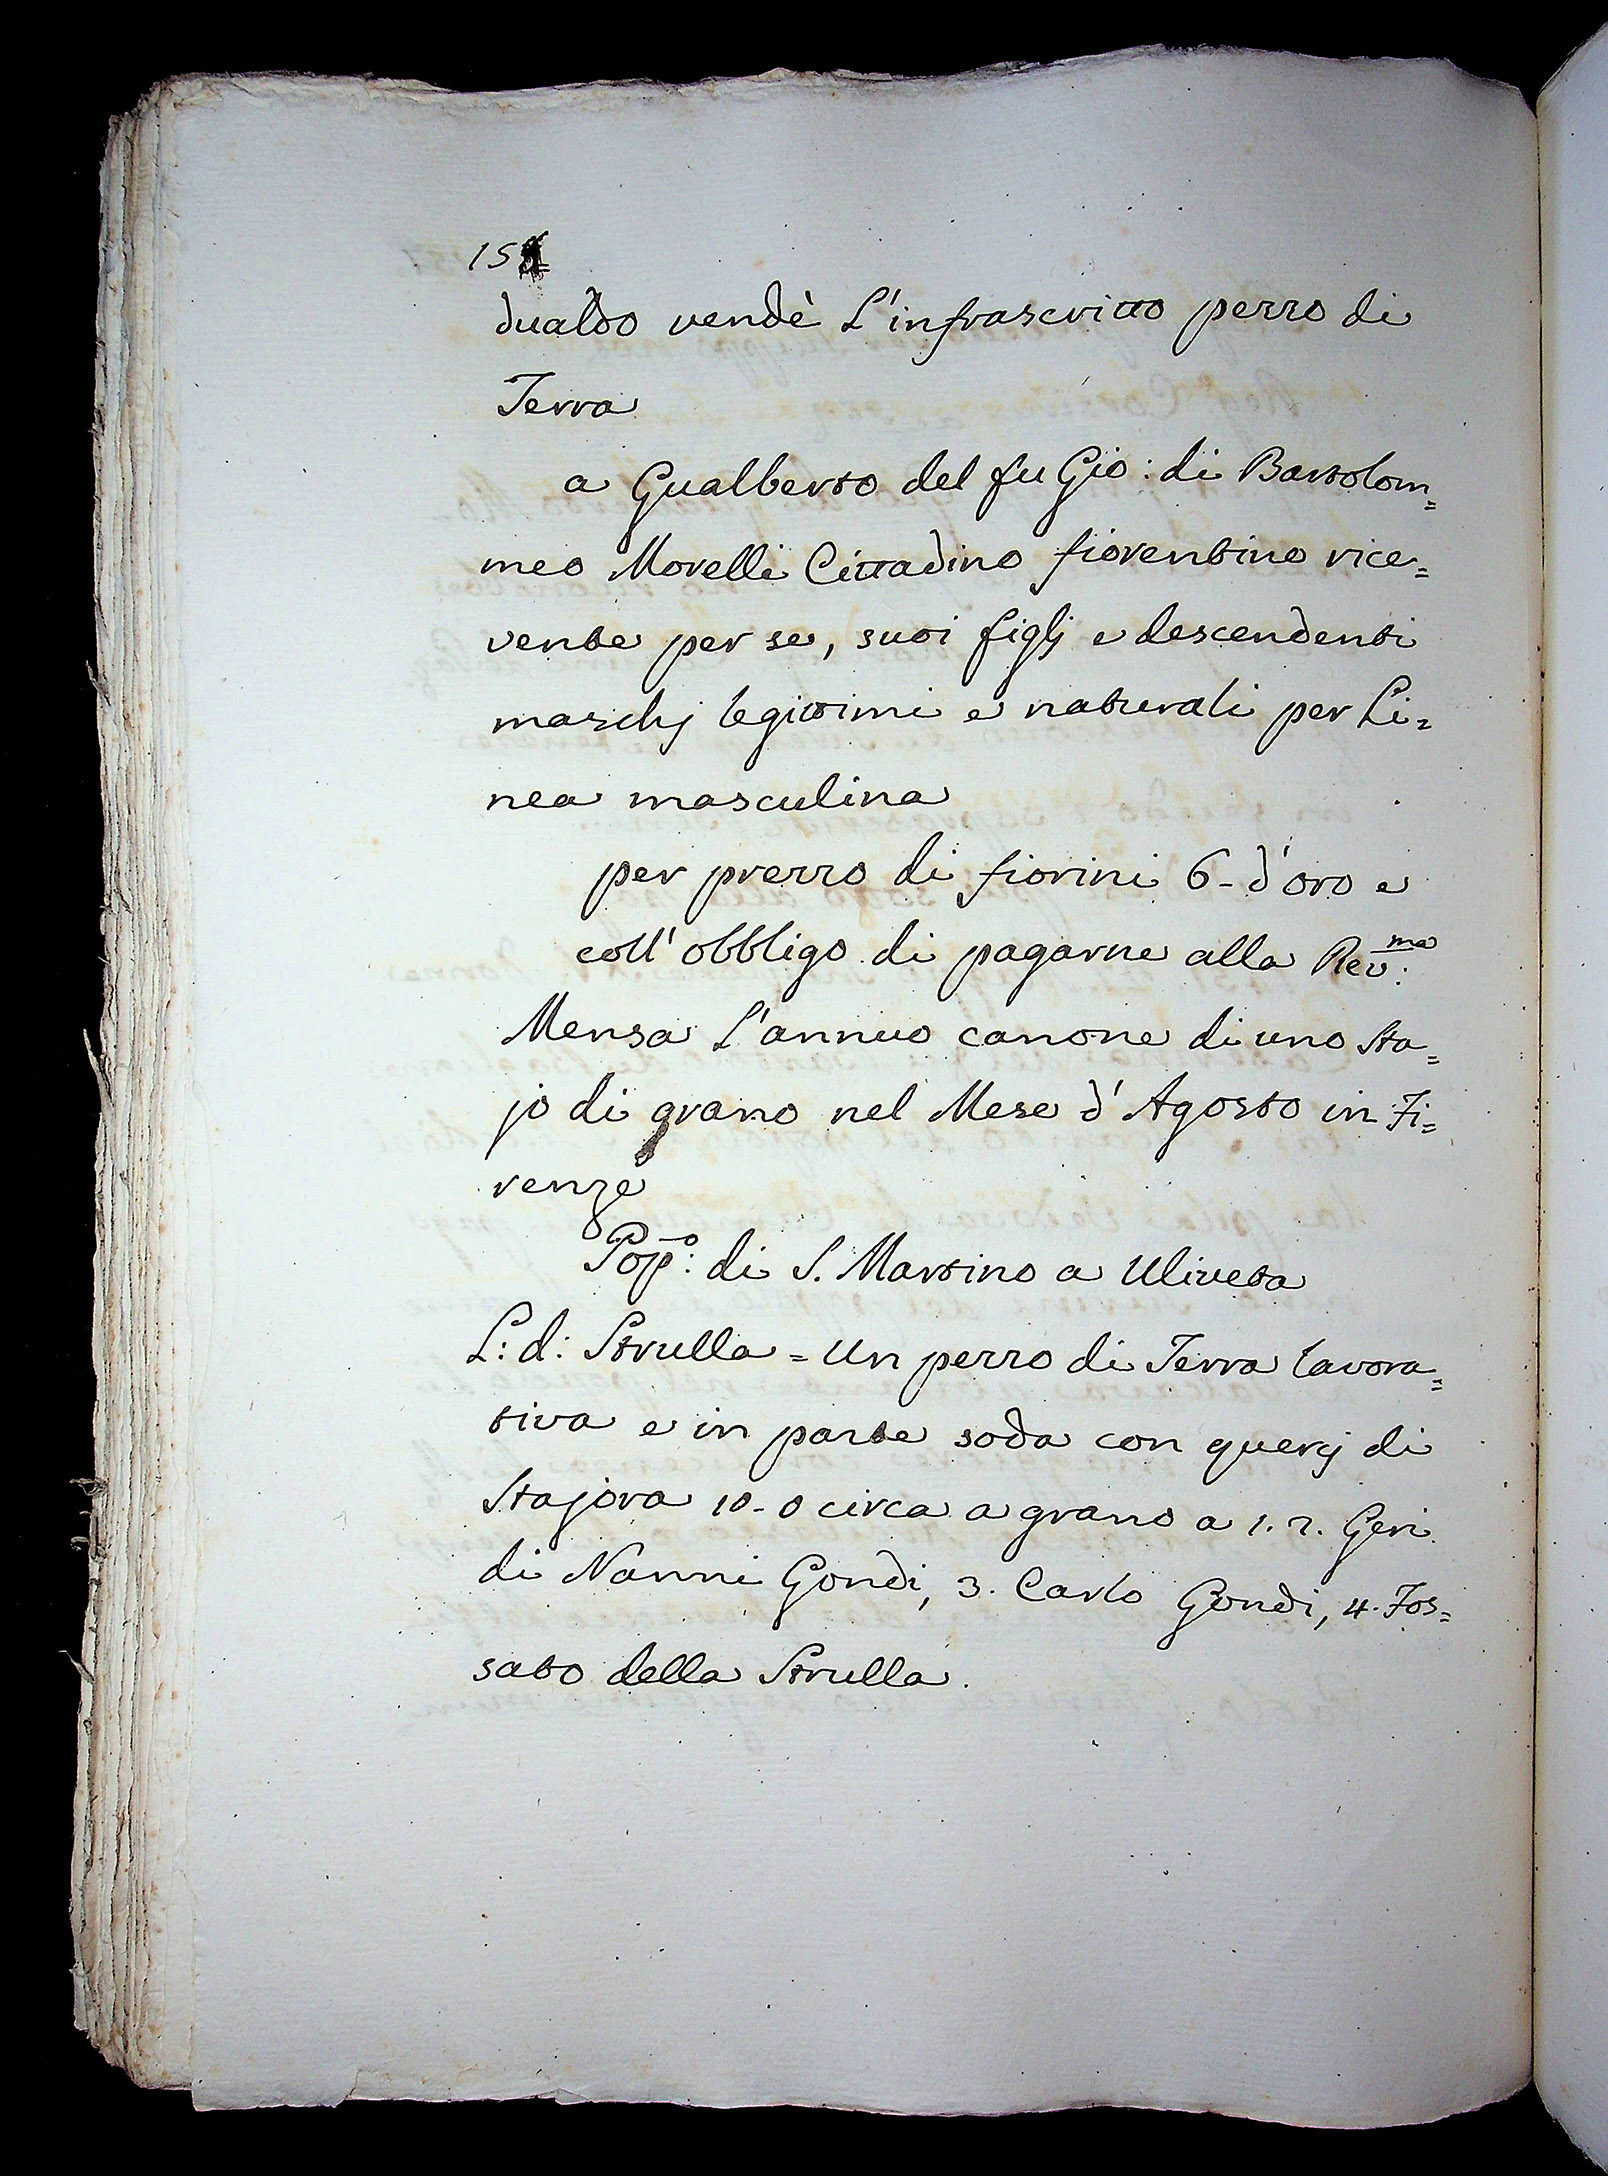 15
dualdo vendè L'infrascritto pezzo di
Terra
a Gualberto del fu Gio: di Bartolom=
meo Morelli Cittadino fiorentino rice=
vente per se, suoi figlj e descendenti
maschj legittimi e naturali per Li=
nea masculina
per prezzo di fiorini 6- d'oro e
coll' obbligo di pagarne alla Rev:ma
Mensa L'annuo canone di uno sta=
jo di grano nel Mese d'Agosto in Fi=
renze
Pop:o di S. Martino a Uliveta
L: d: Strulla = Un pezzo di Terra lavora=
tiva e in parte soda con quercj di
Stajora 10-0 circa a grano a 1. 2. Geri
di Nanni Gondi, 3. Carlo Gondi, 4. Fos=
sato della Strulla.